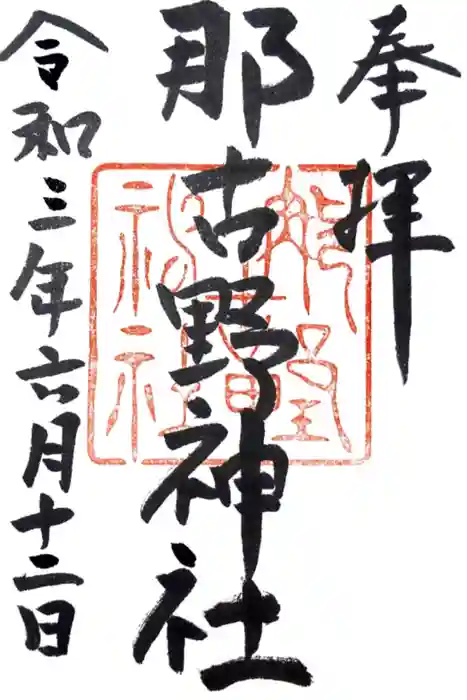 奉拝
那古野神社
令和三年六月十二日